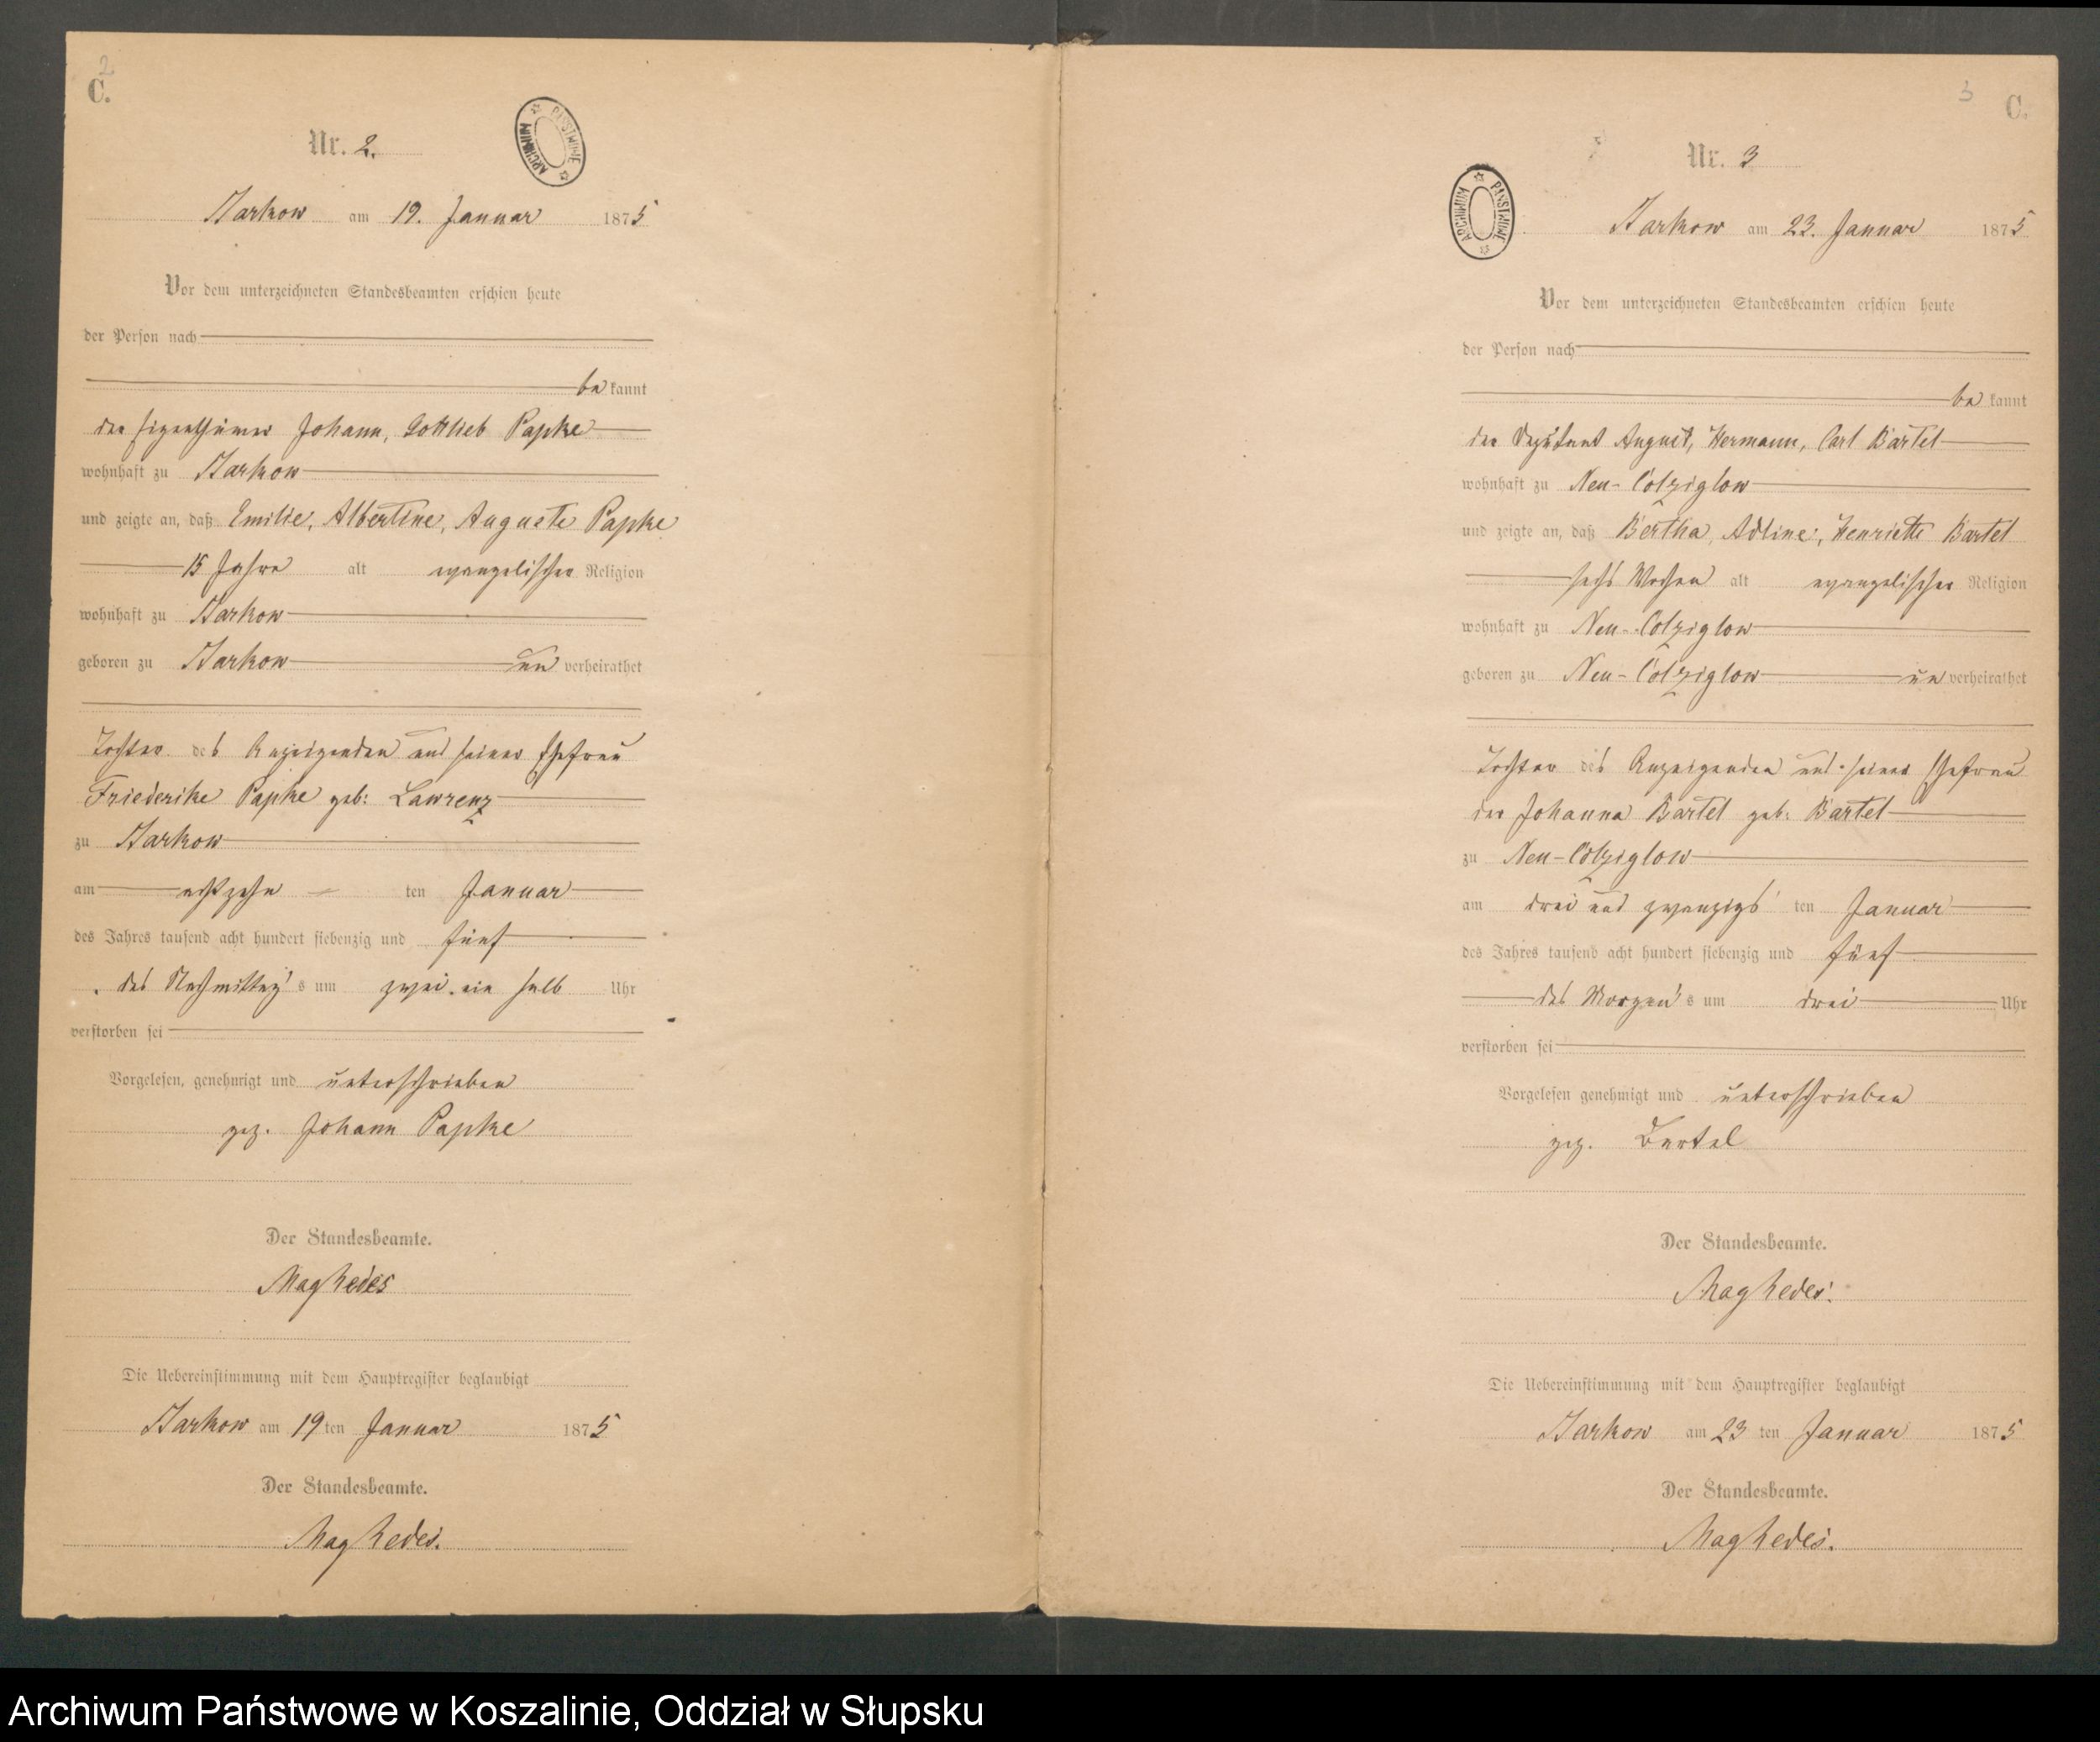 2
C.
Nr. 2.
ARCHIWUM PAŃSTWOWE
Barkow am 19. Januar 1875
Vor dem unterzeichneten Standesbeamten erschien heute
der Person nach
bekannt
der Eigenthümer Johann, Gottlieb Papke
wohnhaft zu Barkow
und zeigte an, daß Emilie, Albertine, Auguste Papke
15 Jahre alt evangelischer Religion
wohnhaft zu Barkow
geboren zu Barkow unverheirathet
Tochter des Anzeigenden und seiner Ehefrau
Friederike Papke geb: Lawrenz
zu Barkow
am achtzehn ten Januar
des Jahres tausend acht hundert siebenzig und fünf
des Nachmittags um zwei ein halb Uhr
verstorben sei
Vorgelesen, genehmigt und unterschrieben
gez. Johann Papke
Der Standesbeamte.
Die Uebereinstimmung mit dem Hauptregister beglaubigt
Barkow am 19ten Januar 1875
Der Standesbeamte.
3
C.
Nr. 3
ARCHIWUM PAŃSTWOWE
Barkow am 23. Januar 1875
Vor dem unterzeichneten Standesbeamten erschien heute
der Person nach
bekannt
der Deputant August, Hermann, Carl Bartel
wohnhaft zu Neu-Colziglow
und zeigte an, daß Bertha, Adline, Henriette Bartel
sechs Wochen alt evangelischer Religion
wohnhaft zu Neu-Colziglow
geboren zu Neu-Colziglow unverheirathet
Tochter des Anzeigenden und seiner Ehefrau
der Johanna Bartel geb: Bartel
zu Neu-Colziglow
am drei und zwanzigs ten Januar
des Jahres tausend acht hundert siebenzig und fünf
des Morgens um drei Uhr
verstorben sei
Vorgelesen genehmigt und unterschrieben
gez. Bartel
Der Standesbeamte.
Die Uebereinstimmung mit dem Hauptregister beglaubigt
Barkow am 23 ten Januar 1875
Der Standesbeamte.
Archiwum Państwowe w Koszalinie, Oddział w Słupsku